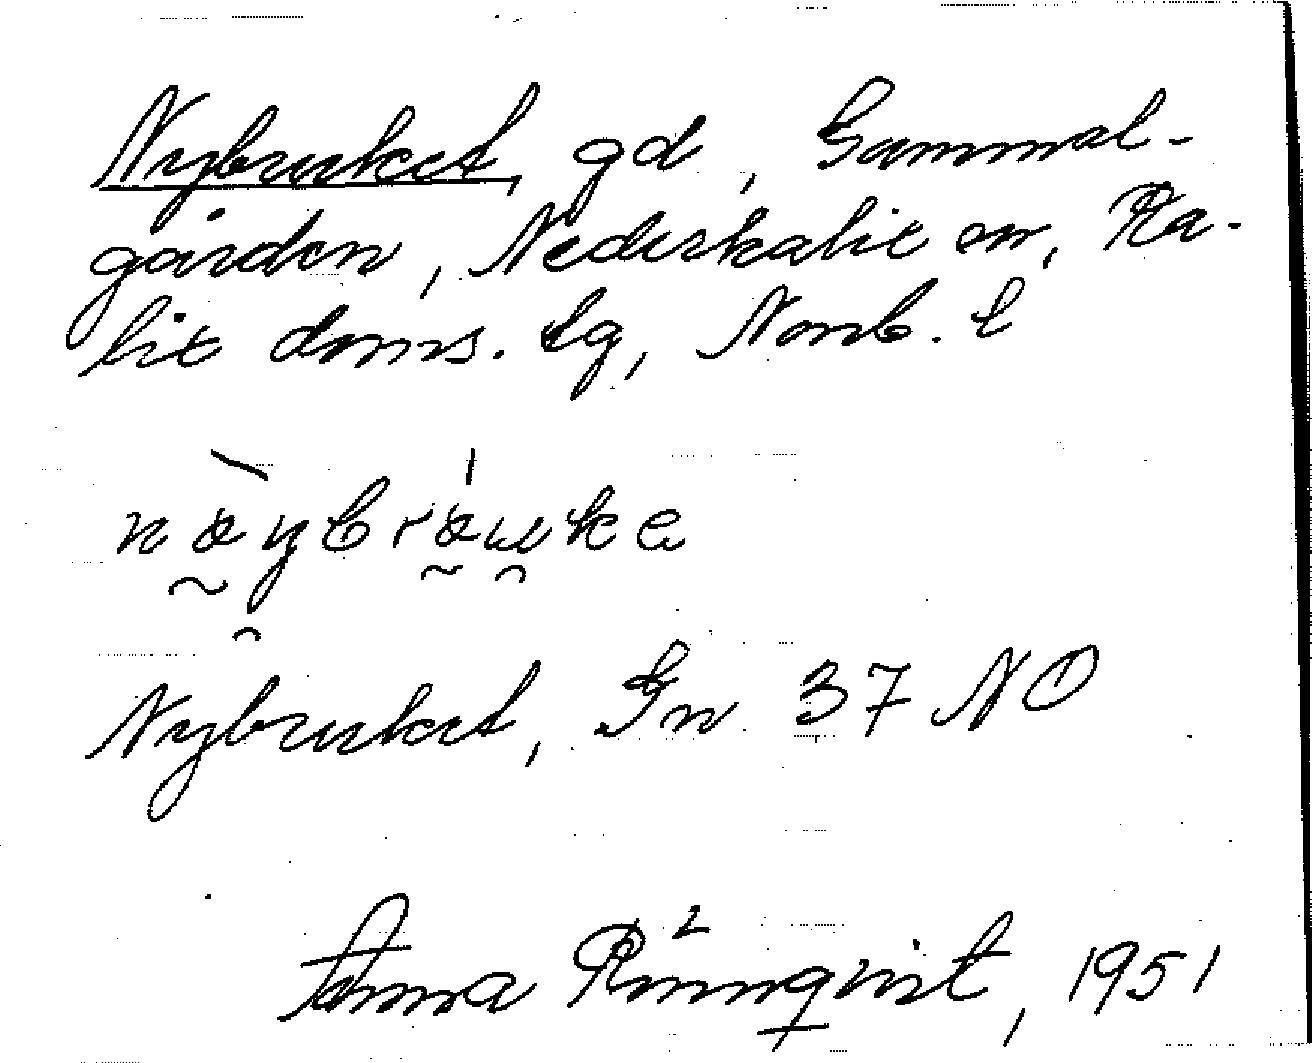 Nybruket, gd, Gammal-
gården, Nederkalix sn, Ka-
lix doms. lg, Norrb. l
Nybruket, Gn 37 NO
Anna Rönnqvist, 1951